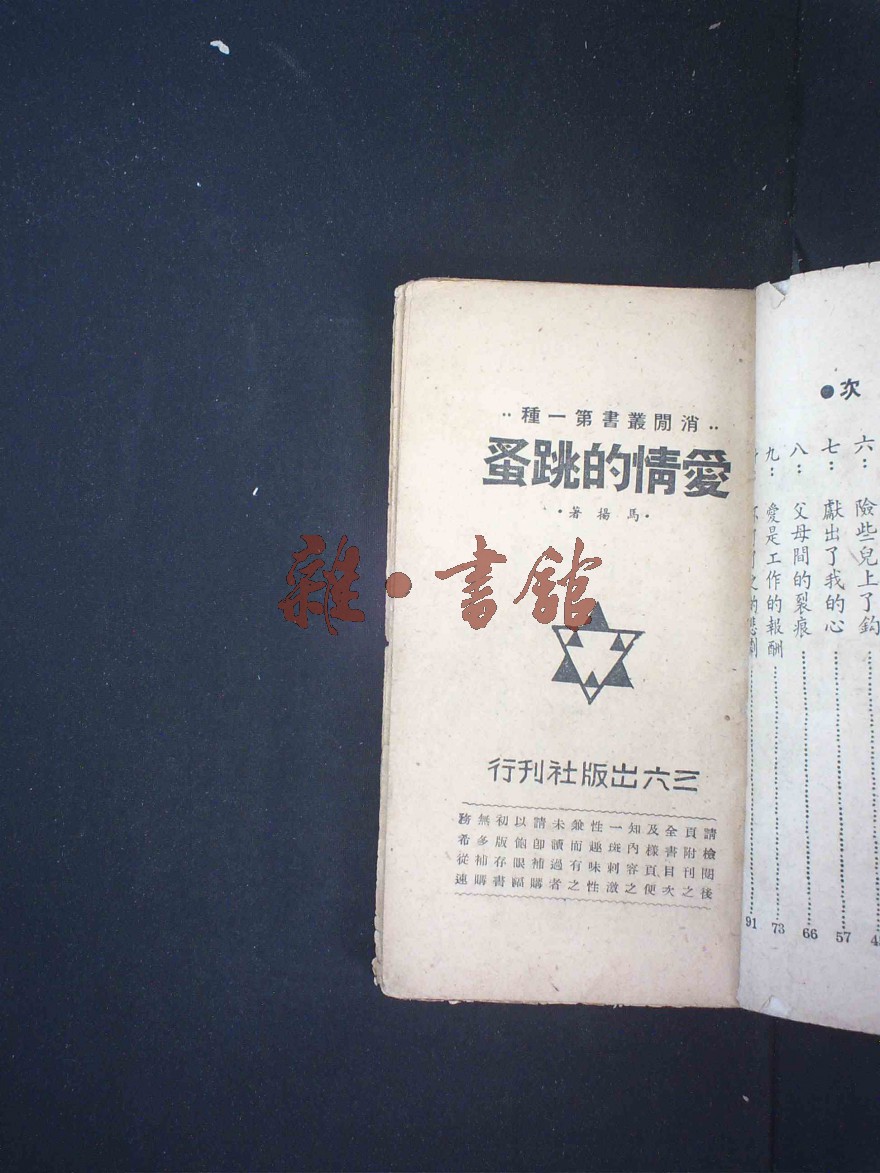 ●次
六：險些兒上了鈎
七：獻出了我的心 57
八：父母間的裂痕 66
九：愛是工作的報酬 73
的悲劇 91
消閒叢書第一種
愛情的跳蚤
•馬揚著•
三六出版社刊行
請檢閱後
頁附刊之
全書目次
及樣頁便
知內容之
一斑刺激
性趣味性
兼而有之
未讀過者
請卽補購
以飽眼福
初版存書
無多補購
務希從速
雜·書館